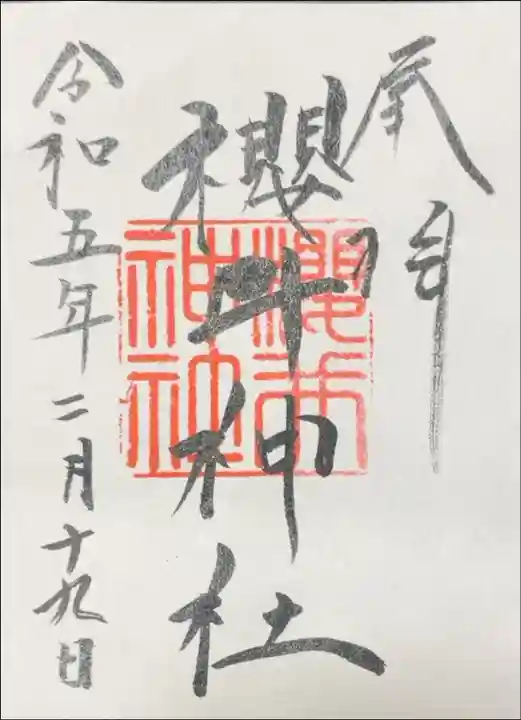 奉拝
櫻井神社
櫻井神社
令和五年二月十九日